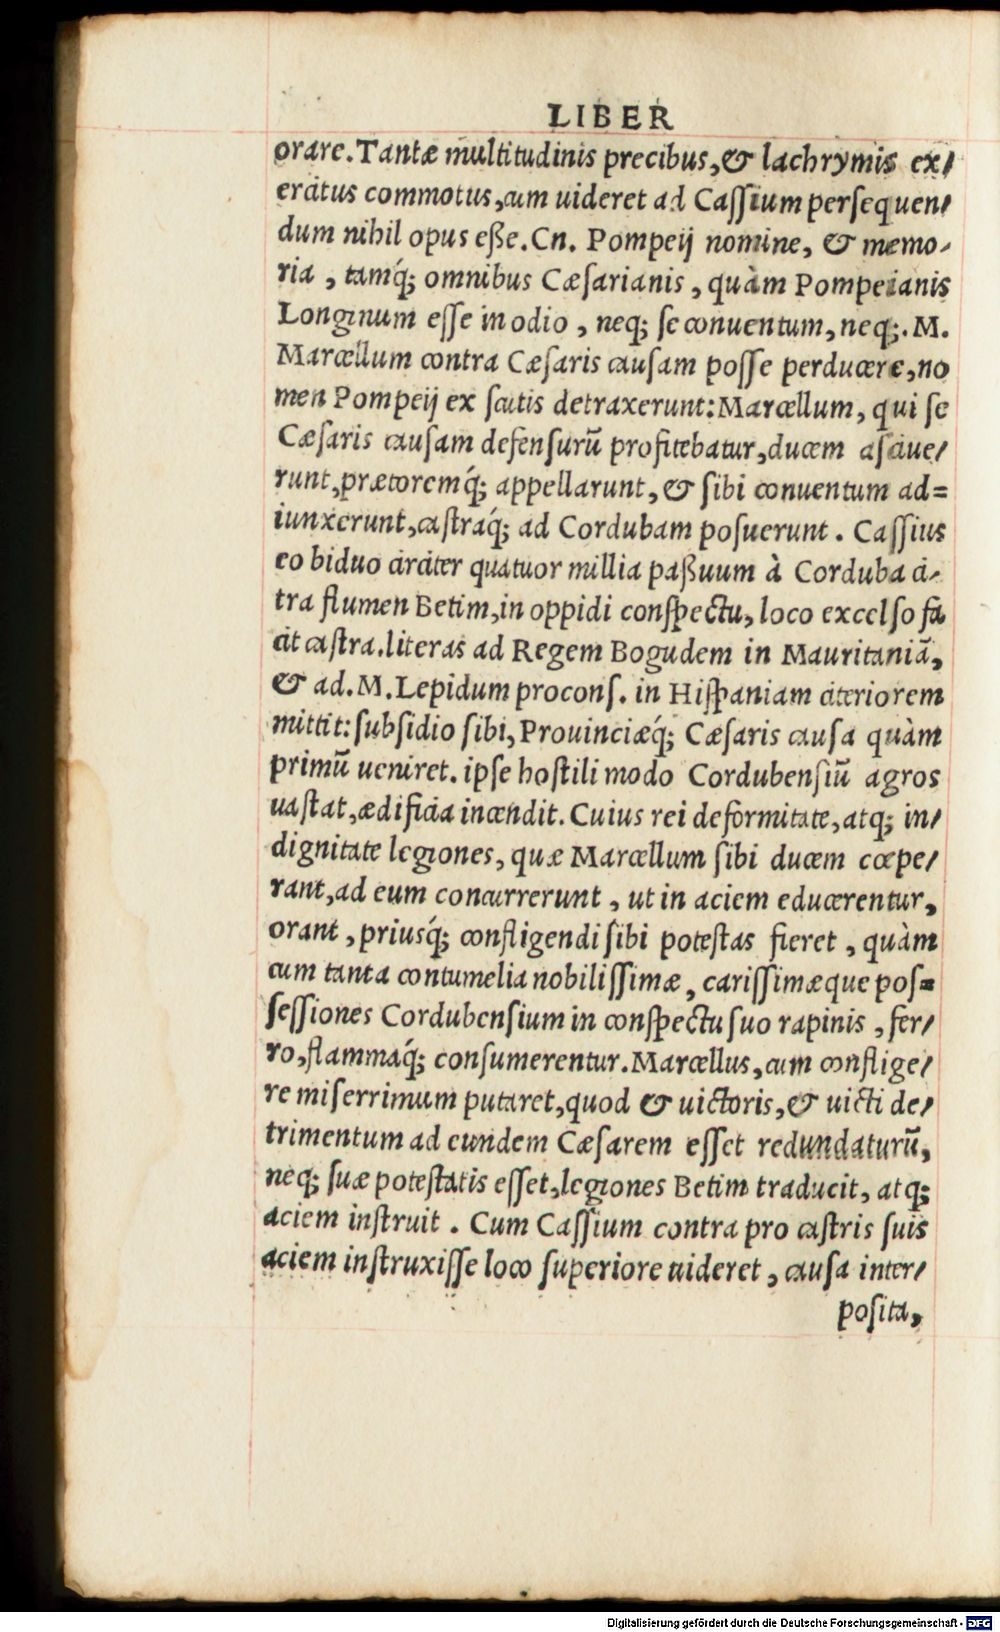 LIBER
orare. Tantæ multitudinis precibus, & lachrymis ex/
ercitus commotus, cum uideret ad Caſſium perſequen/
dum nihil opus eße. Cn. Pompeij nomine, & memo-
ria, tamq́; omnibus Cæſarianis, quàm Pompeianis
Longinum eſſe in odio, neq; ſe conuentum, neq;. M.
Marcellum contra Cæſaris cauſam poſſe perducere, no
men Pompeij ex ſcutis detraxerunt: Marcellum, qui ſe
Cæſaris cauſam defenſurũ profitebatur, ducem aſciue/
runt, prætoremq́; appellarunt, & ſibi conuentum ad=
iunxerunt, caſtraq́; ad Cordubam poſuerunt. Caſſius
eo biduo circiter quatuor millia paßuum à Corduba ci-
tra flumen Betim, in oppidi conſpectu, loco excelſo fa
cit caſtra. literas ad Regem Bogudem in Mauritaniã,
& ad. M. Lepidum proconſ. in Hiſpaniam citeriorem
mittit: ſubſidio ſibi, Prouinciæq́; Cæſaris cauſa quàm
primũ ueniret. ipſe hoſtili modo Cordubenſiũ agros
uaſtat, ædificia incendit. Cuius rei deformitate, atq; in/
dignitate legiones, quæ Marcellum ſibi ducem cœpe/
rant, ad eum concurrerunt, ut in aciem educerentur,
orant, priusq́; confligendi ſibi poteſtas fieret, quàm
cum tanta contumelia nobiliſſimæ, cariſſimæque poſ=
ſeſſiones Cordubenſium in conſpectu ſuo rapinis, fer/
ro, flammaq́; conſumerentur. Marcellus, cum conflige/
re miſerrimum putaret, quod & uictoris, & uicti de/
trimentum ad eundem Cæſarem eſſet redundaturũ,
neq; ſuæ poteſtatis eſſet, legiones Betim traducit, atq;
aciem inſtruit. Cum Caſſium contra pro caſtris ſuis
aciem inſtruxiſſe loco ſuperiore uideret, cauſa inter/
poſita,
Digitalisierung gefördert durch die Deutsche Forschungsgemeinschaft - DFG